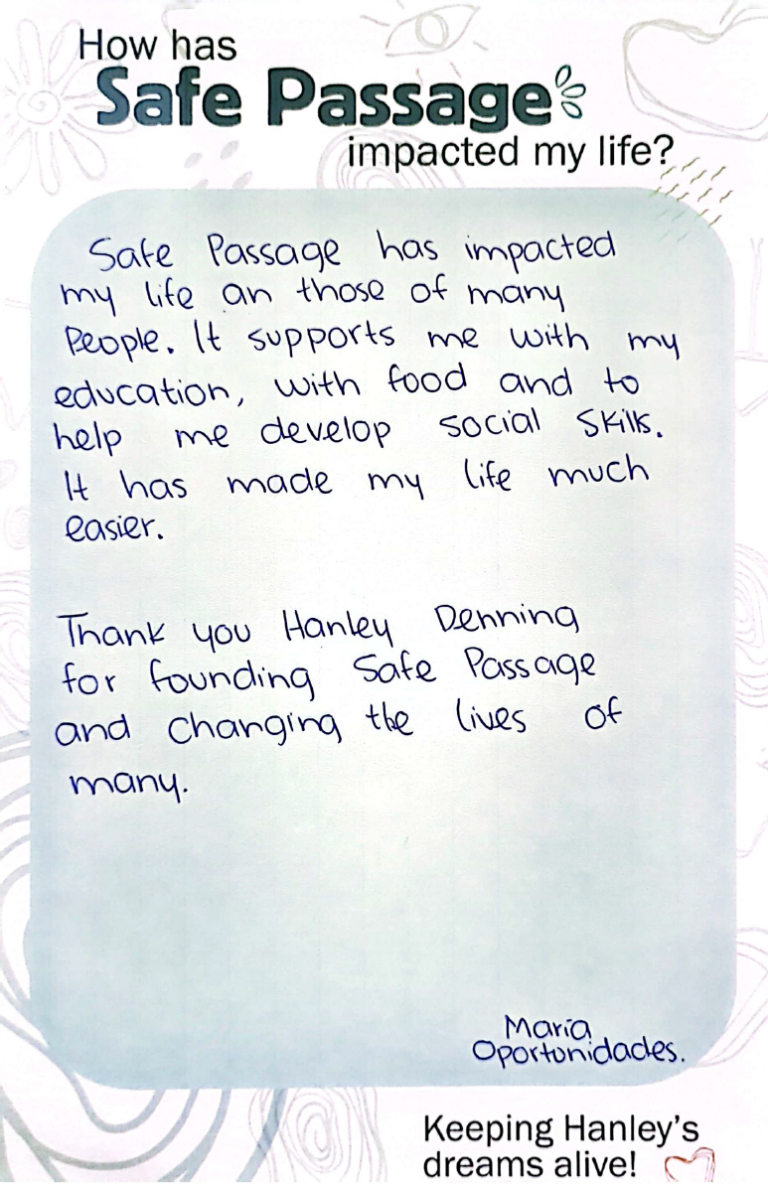 How has
Safe Passage
impacted my life?
Safe Passage has impacted
my life an those of many
People. It supports me with my
education, with food and to
help me develop social skills.
It has made my life much
easier.
Thank you Hanley Denning
for founding Safe Passage
and changing the lives of
many.
María
Oportunidades.
Keeping Hanley's
dreams alive!